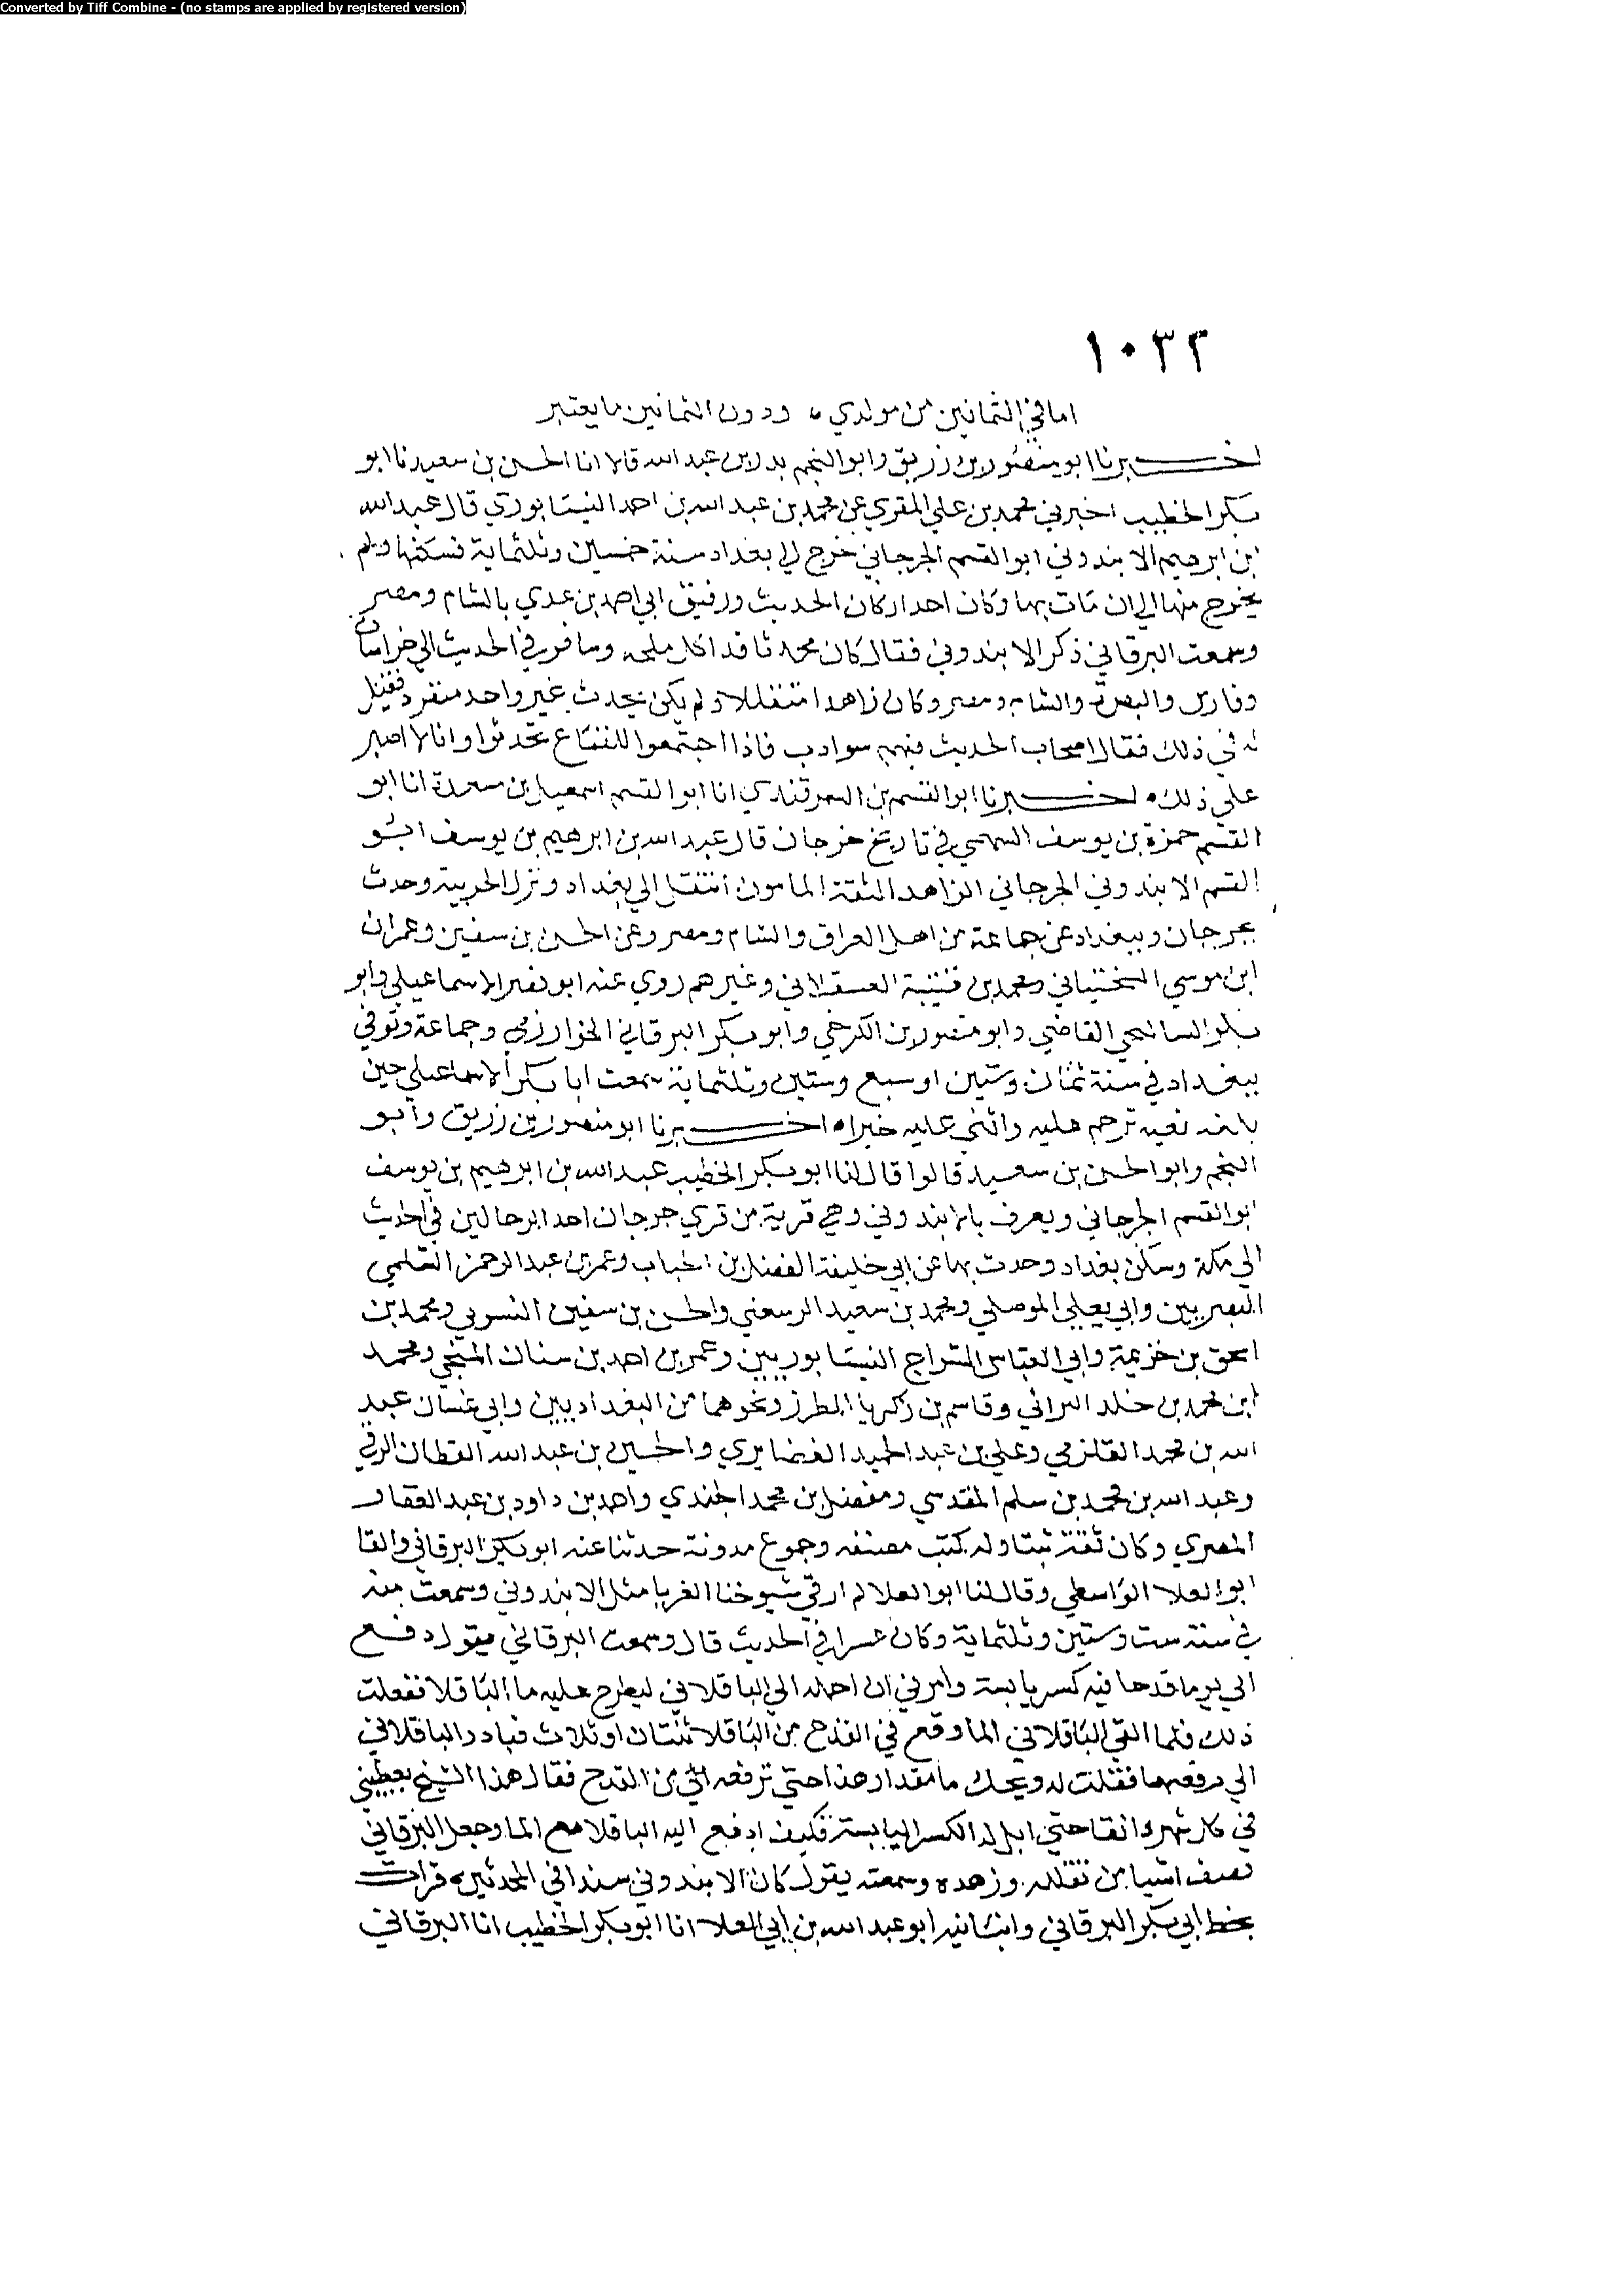 Converted by Tiff Combine - (no stamps are applied by registered version)
١٠٣٢
اما في الثمانين من مولدي ، ودون الثمانين ما يعتبر
اخبرنا ابو منصور بن زريق وابو النجم بدر بن عبد الله قالا انا الحسن بن سعيد نا ابو
بكر الخطيب اخبرني محمد بن علي المقري عن محمد بن عبد الله بن احمد النيسابوري قال عبد الله
بن ابرهيم الابندوني ابو القسم الجرجاني خرج الي بغداد سنة خمسين وثلثماية فسكنها ولم
يخرج منها الي ان مات بها وكان احد اركان الحديث ورفيق ابي احمد بن عدي بالشام ومصر
وسمعت البرقاني ذكر الابندوني فقال كان محدثا قد اكل ملحه وسافر في الحديث الي خراسان
وفارس والبصرة والشام ومصر وكان زاهدا متقللا ولم يكن يحدث غير واحد منفرد فقيل
له في ذلك فقال اصحاب الحديث فيهم سو ادب فاذا اجتمعوا للسماع تحدثوا وانا لا اصبر
علي ذلك • اخبرنا ابو القسم بن السمرقندي انا ابو القسم اسمعيل بن مسعدة انا ابو
القسم حمزة بن يوسف السهمي في تاريخ جرجان قال عبد الله بن ابرهيم بن يوسف ابو
القسم الابندوني الجرجاني الزاهد الثقة المامون انتقل الي بغداد ونزل الحربية وحدث
بجرجان وببغداد عن جماعة من اهل العراق والشام ومصر وعن الحسن بن سفين وعمران
ابن موسي السختياني ومحمد بن قتيبة العسقلاني وغيرهم روي عنه ابو نصر الاسماعيلي وابو
بكر السالنجي القاضي وابو منصور بن الكرخي وابو بكر البرقاني الخوارزمي وجماعة وتوفي
ببغداد في سنة ثمان وستين او سبع وستين وثلثماية سمعت ابا بكر الاسماعيلي حين
بلغه نعيه ترحم عليه واثني عليه خيرا ه اخبرنا ابو منصور بن زريق وابو
النجم وابو الحسن بن سعيد قالوا قال لنا ابو بكر الخطيب عبد الله بن ابرهيم بن يوسف
ابو القسم الجرجاني ويعرف بالابندوني وهي قرية من قري جرجان احد الرحالين في الحديث
الي مكة وسكن بغداد وحدث بها عن ابي خليفة الفضل بن الحباب وعمر بن عبد الرحمن السلمي
البصريين وابي يعلي الموصلي ومحمد بن سعيد الرسعني والحسن بن سفين النسوي ومحمد بن
اسحق بن خزيمة وابي العباس السراج النيسابوريين وعمر بن احمد بن سنان المنبجي ومحمد
ابن محمد بن خلد البراثي وقاسم بن زكريا المطرز ونحوهما من البغداديين وابي غسان عبد
الله بن محمد القلزمي وعلي بن عبد الحميد الغضايري والحسين بن عبد الله القطان الرقي
وعبد الله بن محمد بن سلم المقدسي ومفضل بن محمد الجندي واحمد بن داود بن عبد الغفار
المصري وكان ثقة ثبتا وله كتب مصنفه وجموع مدونة حدثنا عنه ابو بكر البرقاني والقا
ابو العلا الواسطي وقال لنا ابو العلا لم ار في شيوخنا الغربا مثل الابندوني وسمعت منه
في سنة ست وستين وثلثماية وكان عسرا في الحديث قال وسمعت البرقاني يقول دفع
الي يوما قدحا فيه كسر يابسة وامرني ان احمله الي الباقلاني ليطرح عليه ما الباقلا ففعلت
ذلك فلما القي الباقلاني الما وقع في القدح من الباقلا ثنتان او ثلاث فبادر الباقلاني
الي رفعهما فقلت له ويحك ما مقدار هذا حتي ترفعه من القدح فقال هذا الشيخ يعطيني
في كل شهر دانقا حتي ابل له الكسر اليابسة فكيف ادفع اليه الباقلا مع الما وجعل البرقاني
يصف اشيا من تقلله وزهده وسمعته يقول كان الابندوني سندا في المحدثين ه قرات
بخط ابي بكر البرقاني وانبانيه ابو عبد الله بن ابي العلا انا ابو بكر الخطيب انا البرقاني